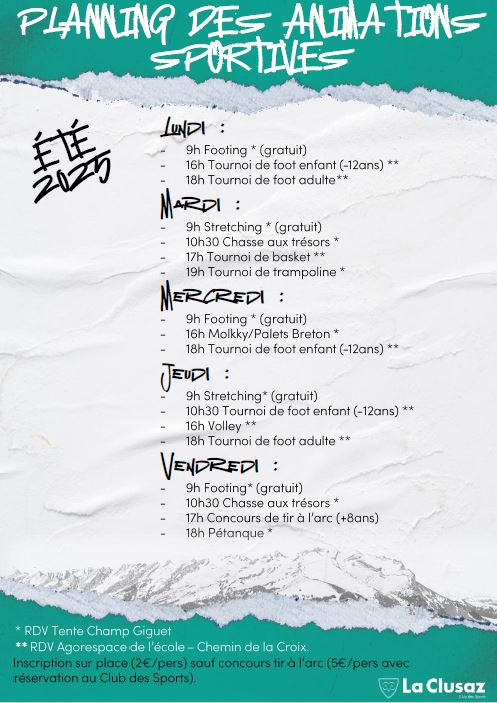 PLANNING DES ANIMATIONS
SPORTIVES
ÉTÉ
2025
LUNDI :
- 9h Footing * (gratuit)
- 16h Tournoi de foot enfant (-12ans) **
- 18h Tournoi de foot adulte**
MARDI :
- 9h Stretching * (gratuit)
- 10h30 Chasse aux trésors *
- 17h Tournoi de basket **
- 19h Tournoi de trampoline *
MERCREDI :
- 9h Footing * (gratuit)
- 16h Molkky/Palets Breton *
- 18h Tournoi de foot enfant (-12ans) **
JEUDI :
- 9h Stretching* (gratuit)
- 10h30 Tournoi de foot enfant (-12ans) **
- 16h Volley **
- 18h Tournoi de foot adulte **
VENDREDI :
- 9h Footing* (gratuit)
- 10h30 Chasse aux trésors *
- 17h Concours de tir à l'arc (+8ans)
- 18h Pétanque *
* RDV Tente Champ Giguet
** RDV Agorespace de l'école – Chemin de la Croix.
Inscription sur place (2€/pers) sauf concours tir à l'arc (5€/pers avec
réservation au Club des Sports).
La Clusaz
Club des Sports